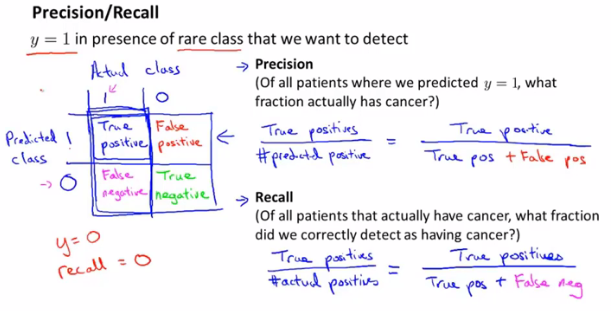 Precision/Recall
y = 1 in presence of rare class that we want to detect
Actual class
1 0
Predicted class
1
True positive
False positive
0
False negative
True negative
y=0
recall = 0
→ Precision
(Of all patients where we predicted y = 1, what
fraction actually has cancer?)
True positives
#predicted positive
=
True positive
True pos + False pos
→ Recall
(Of all patients that actually have cancer, what fraction
did we correctly detect as having cancer?)
True positives
#actual positives
=
True positives
True pos + False neg